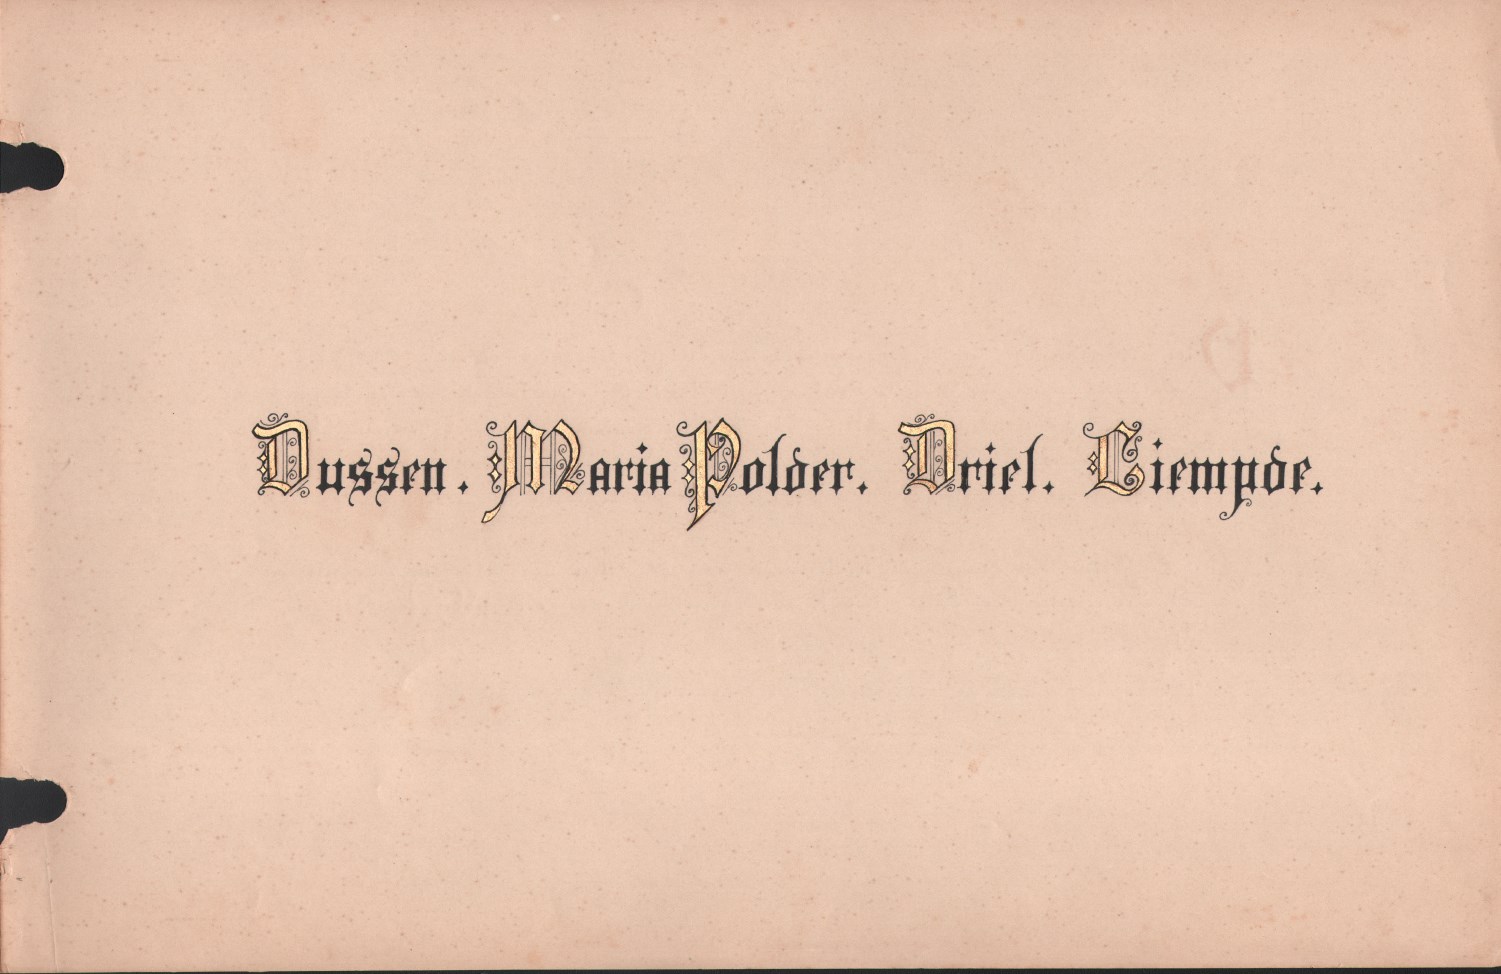 Dussen. Maria Polder. Driel. Liempde.